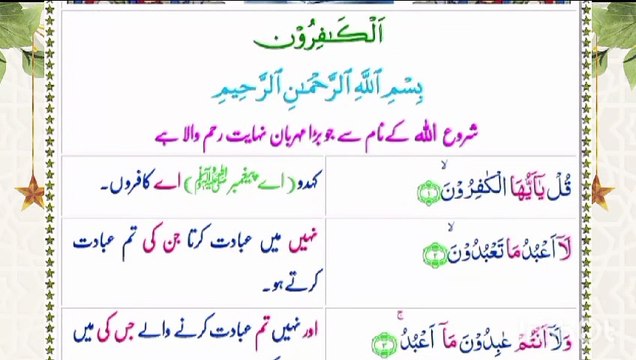 اَلْكَافِرُوْن
بِسْمِ ٱللَّهِ ٱلرَّحْمَـٰنِ ٱلرَّحِيمِ
شروع الله کے نام سے جو بڑا مہربان نہایت رحم والا ہے
قُلْ يٰٓاَيُّهَا الْكٰفِرُوْنَ ۙ﴿۱﴾
کہدو (اے پیغمبر ﷺ) اے کافروں۔
لَاۤ اَعْبُدُ مَا تَعْبُدُوْنَ ۙ﴿۲﴾
نہیں میں عبادت کرتا جن کی تم عبادت
کرتے ہو۔
وَلَاۤ اَنْتُمْ عٰبِدُوْنَ مَاۤ اَعْبُدُ ۚ﴿۳﴾
اور نہیں تم عبادت کرنے والے جس کی میں